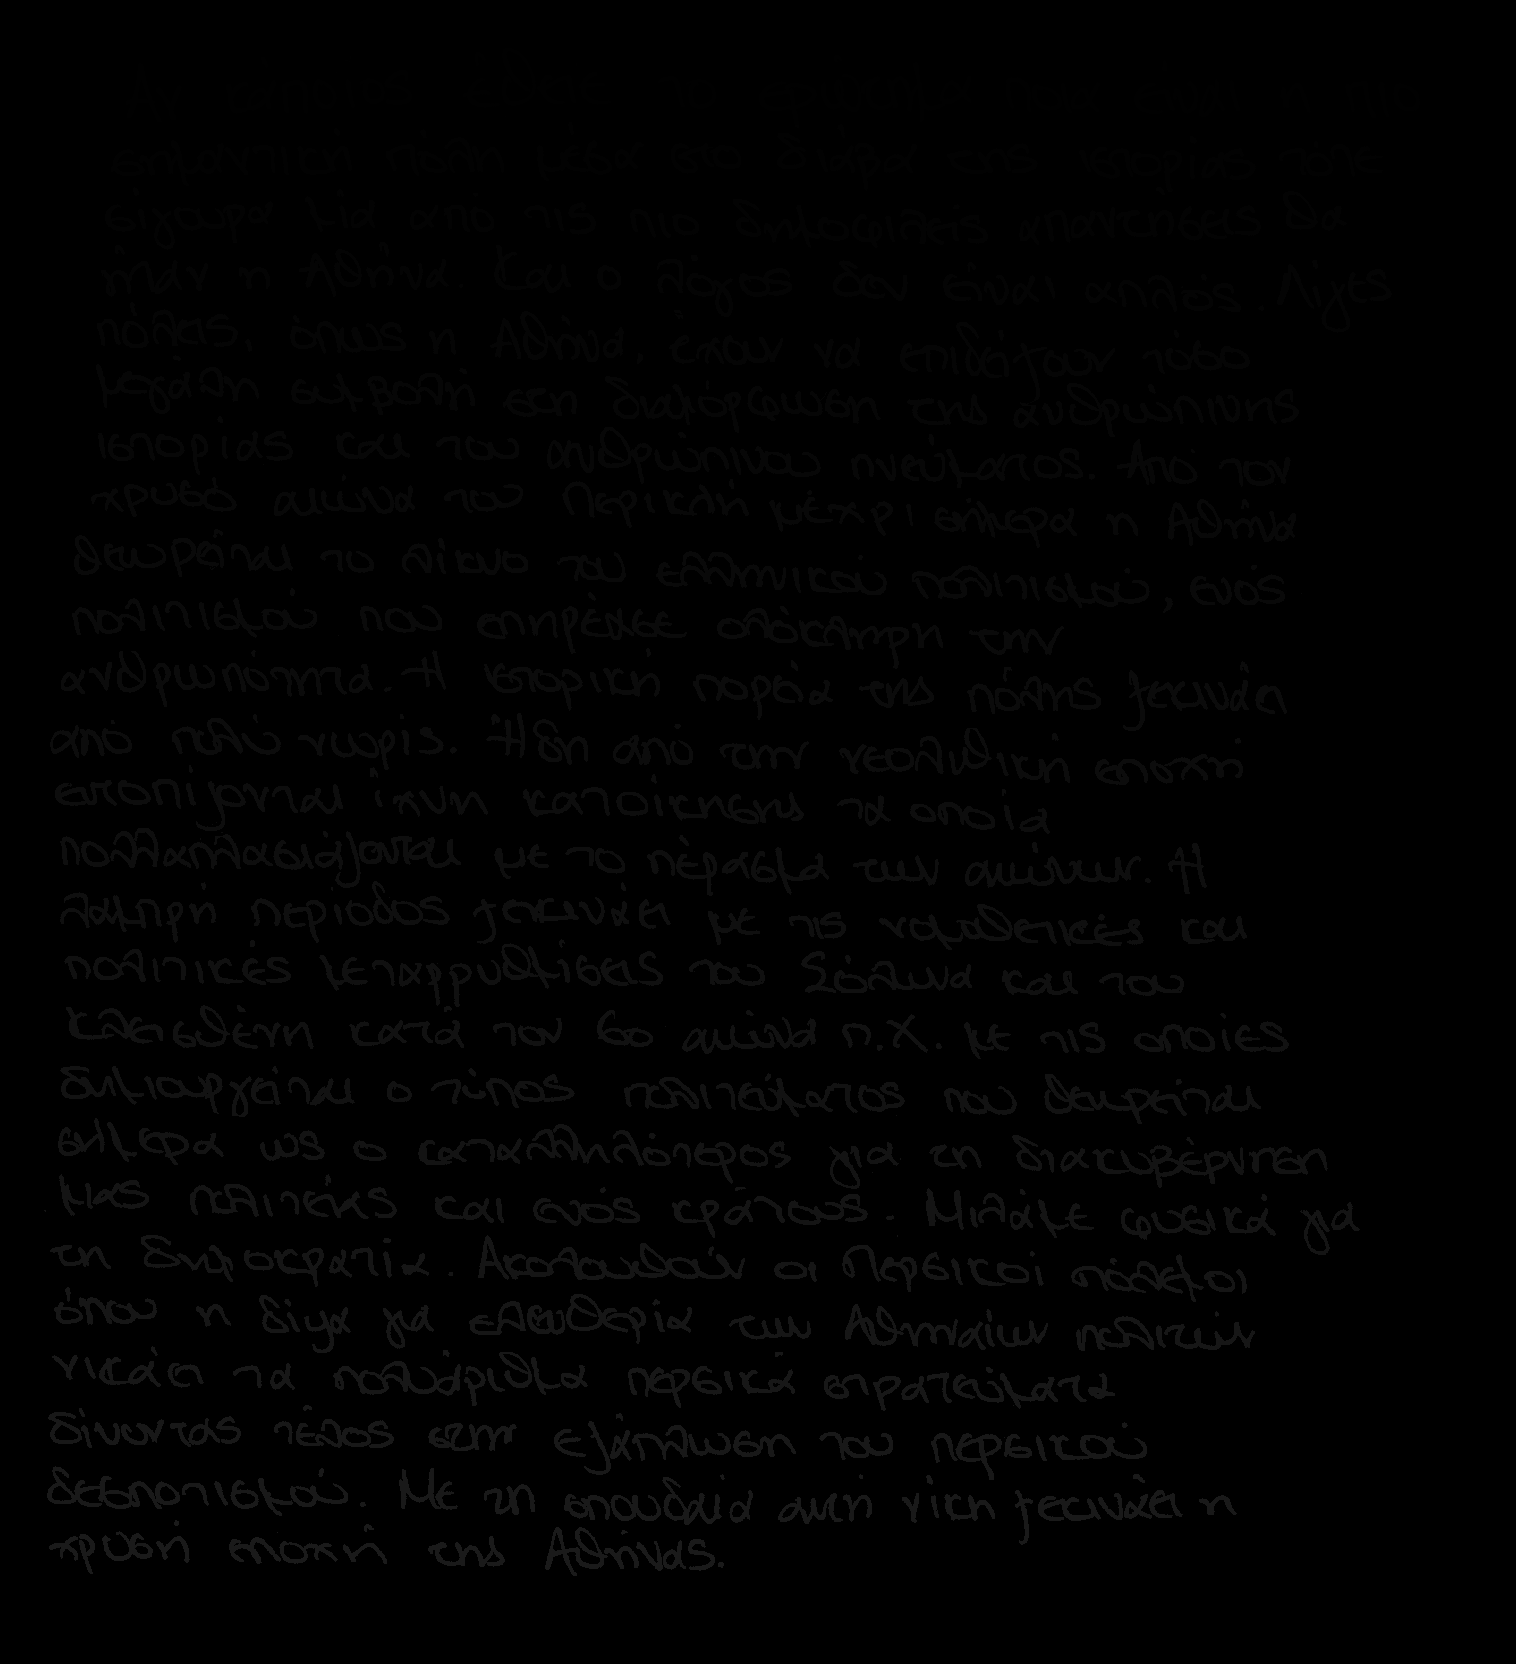 Αν κάποιος έθετε το ερώτημα ποια είναι η πιο
σημαντική πόλη μέσα στο διάβα της ιστορίας τότε
σίγουρα μία από τις πιο δημοφιλείς απαντήσεις θα
ήταν η Αθήνα. Και ο λόγος δεν είναι απλός. Λίγες
πόλεις, όπως η Αθήνα, έχουν να επιδείξουν τόσο
μεγάλη συμβολή στη διαμόρφωση της ανθρώπινης
ιστορίας και του ανθρώπινου πνεύματος. Από τον
χρυσό αιώνα του Περικλή μέχρι σήμερα η Αθήνα
θεωρείται το λίκνο του ελληνικού πολιτισμού, ενός
πολιτισμού που επηρέασε ολόκληρη την
ανθρωπότητα. Η ιστορική πορεία της πόλης ξεκινάει
από πολύ νωρίς. Ήδη από την νεολιθική εποχή
εντοπίζονται ίχνη κατοίκησης τα οποία
πολλαπλασιάζονται με το πέρασμα των αιώνων. Η
λαμπρή περίοδος ξεκινάει με τις νομοθετικές και
πολιτικές μεταρρυθμίσεις του Σόλωνα και του
Κλεισθένη κατά τον 6ο αιώνα π.Χ. με τις οποίες
δημιουργείται ο τύπος πολιτεύματος που θεωρείται
σήμερα ως ο καταλληλότερος για τη διακυβέρνηση
μιας πολιτείας και ενός κράτους. Μιλάμε φυσικά για
τη δημοκρατία. Ακολουθούν οι Περσικοί πόλεμοι
όπου η δίψα για ελευθερία των Αθηναίων πολιτών
νικάει τα πολυάριθμα περσικά στρατεύματα
δίνοντας τέλος στην εξάπλωση του περσικού
δεσποτισμού. Με τη σπουδαία αυτή νίκη ξεκινάει η
χρυσή εποχή της Αθήνας.